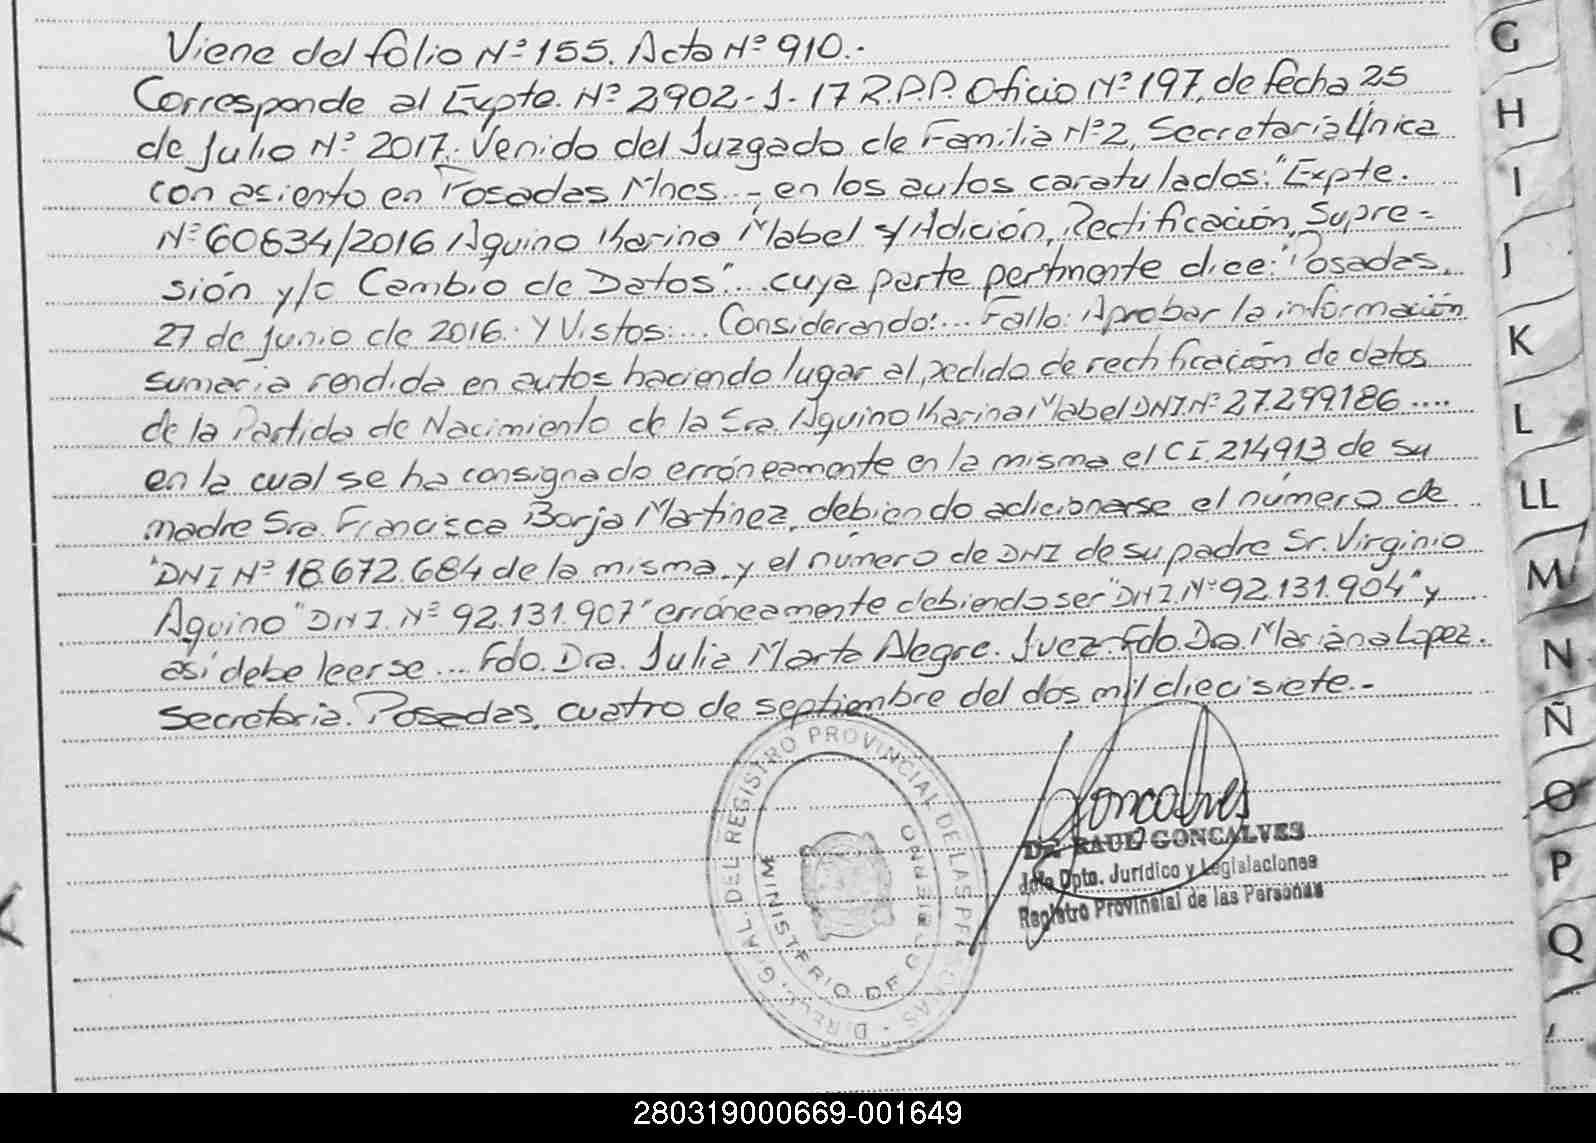 Viene del folio Nº 155. Acta Nº 910.-
Corresponde al Expte. Nº 2902-1-17 R.P.P. Oficio Nº 197, de fecha 25
de Julio Nº 2017. Venido del Juzgado de Familia Nº2, Secretaria Única
con asiento en Posadas Mnes... en los autos caratulados: "Expte.
Nº 60634/2016 Aquino Karina Mabel s/Adición, Rectificación, Supre-
sión y/o Cambio de Datos"... cuya parte pertinente dice: "Posadas,
27 de junio de 2016. Y Vistos:... Considerando:... Fallo: Aprobar la información
sumaria rendida en autos haciendo lugar al pedido de rectificación de datos
de la Partida de Nacimiento de la Sra. Aquino Karina Mabel DNI Nº 27.299.186 ....
en la cual se ha consignado erróneamente en la misma el CI.214913 de su
madre Sra. Francisca Borja Martinez, debiendo adicionarse el número de
"DNI Nº 18.672.684 de la misma y el número de DNI de su padre Sr. Virginio
Aquino "DNI. Nº 92.131.907" erróneamente debiendo ser "DNI Nº 92.131.904" y
así debe leerse... Fdo. Dra. Julia Marta Alegre. Juez. Fdo. Dra. Mariana Lopez.
Secretaria. Posadas, cuatro de septiembre del dos mil diecisiete.-
DIREC. GRAL. DEL REGISTRO PROVINCIAL DE LAS PERSONAS -
MINISTERIO DE GOBIERNO
Goncalves
Dr. RAUL GONCALVES
Jefe Dpto. Jurídico y Legislaciones
Registro Provincial de las Personas
G
H
I
J
K
L
LL
M
N
Ñ
O
P
Q
280319000669-001649